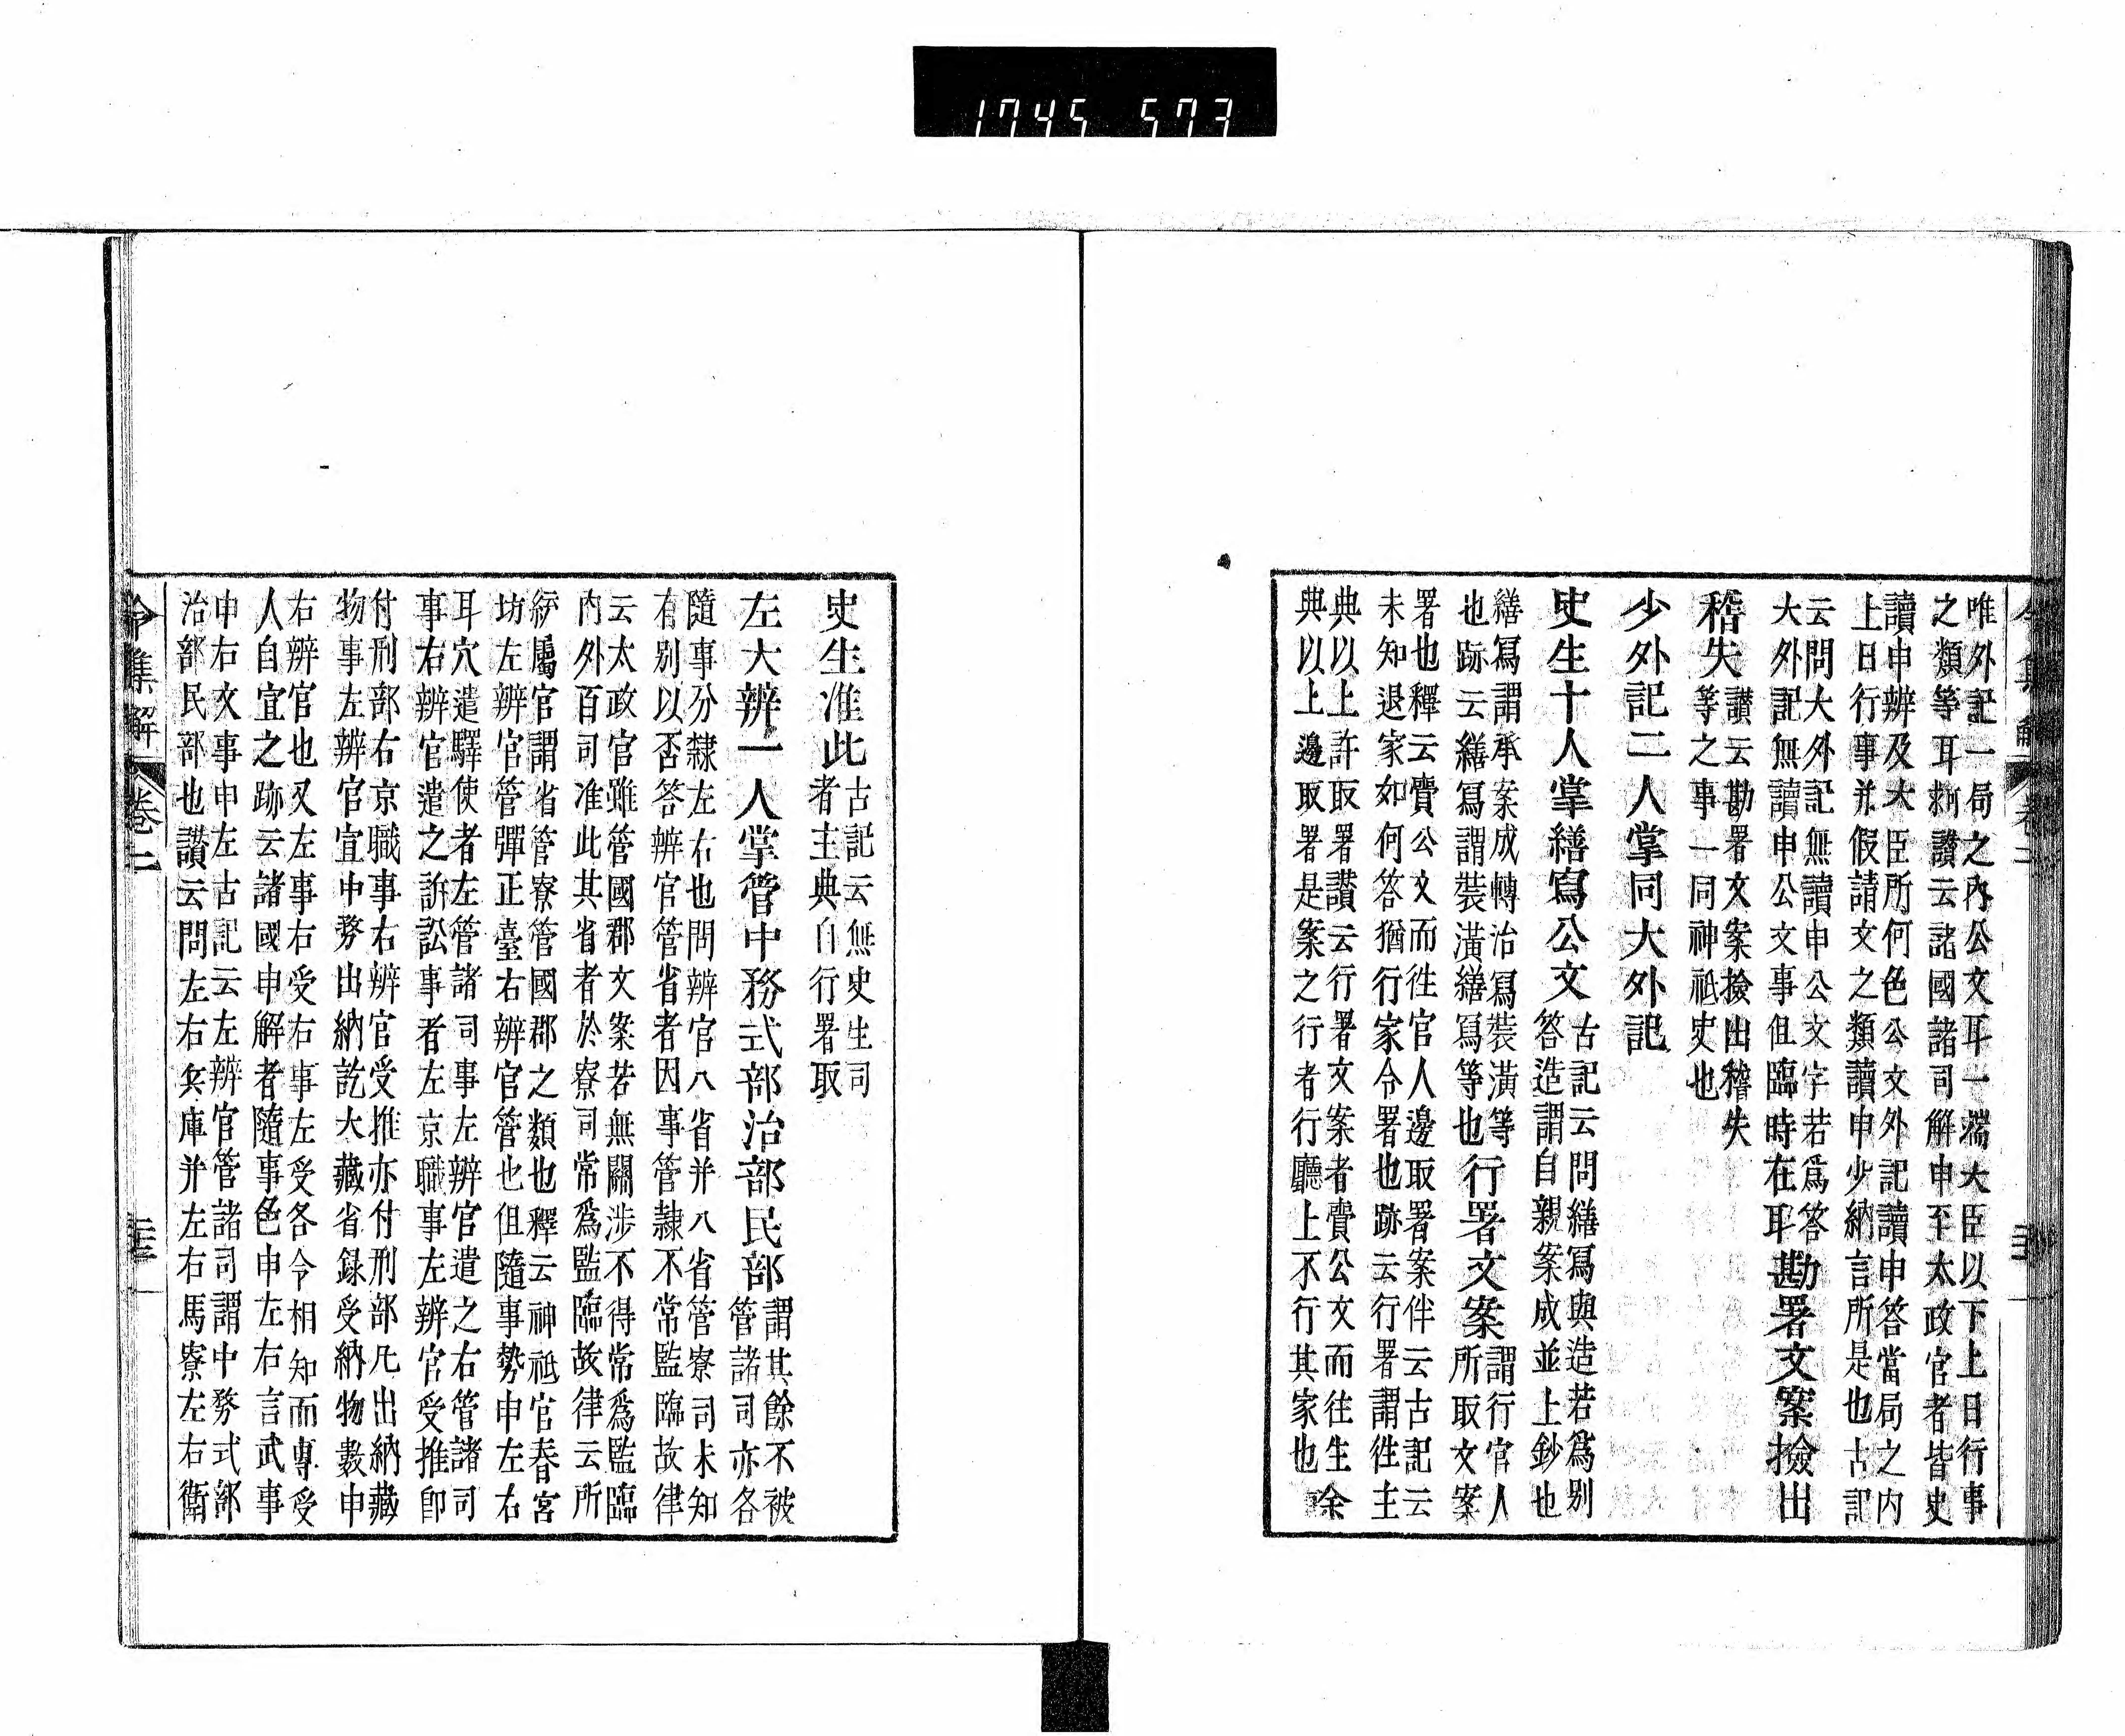 1745 573
唯外記一局之內公文耳一端大臣以下上日行事
之類等耳剌讃云諸國諸司解申至太政官者皆史
讀申辨及大臣所何色公文外記讀申答當局之内
上日行事并假請文之類讀申少納言所是也古記
云問大外記無讀申公文字若爲答
大外記無讀申公文事但臨時在耳
勘署文案撿出
稽失
讃云勘署文案撿出稽失
等之事一同神祇史也
少外記二人掌同大外記
史生十人掌繕寫公文
古記云問繕寫與造若爲別
答造謂自親案成並上鈔也
繕寫謂承案成轉治寫裝潢等
也跡云繕寫謂裝潢繕寫等也
行署文案
謂行官人
所取文案
署也釋云賷公文而徃官人邊取署案伴云古記云
未知退家如何答猶行家令署也跡云行署謂徃主
典以上許取署讃云行署文案者賷公文而往生余
典以上邊取署是案之行者行廳上不行其家也
令集解 卷二
史生准此
古記云無史生司
者主典自行署取
左大辨一人掌管中務式部治部民部
謂其餘不被
管諸司亦各
隨事分隸左右也問辨官八省并八省管寮司未知
有別以否答辨官管省者因事管隷不常監臨故律
云太政官雖管國郡文案若無關涉不得常爲監臨
内外百司准此其省者於寮司常爲監臨故律云所
屬官謂省管寮管國郡之類也釋云神祇官春宮
坊左辨官管彈正臺右辨官管也但隨事勢申左右
耳穴遣驛使者左管諸司事左辨官遣之右管諸司
事右辨官遣之訴訟事者左京職事左辨官受推卽
付刑部右京職事右辨官受推亦付刑部凡出納藏
物事左辨官宣中務出納訖大藏省録受納物數申
右辨官也又左事右受右事左受各令相知而專受
人自宜之跡云諸國申解者隨事色申左右言武事
申右文事申左古記云左辨官管諸司謂中務式部
治部民部也讃云問左右兵庫并左右馬寮左右衛
令集解 卷二